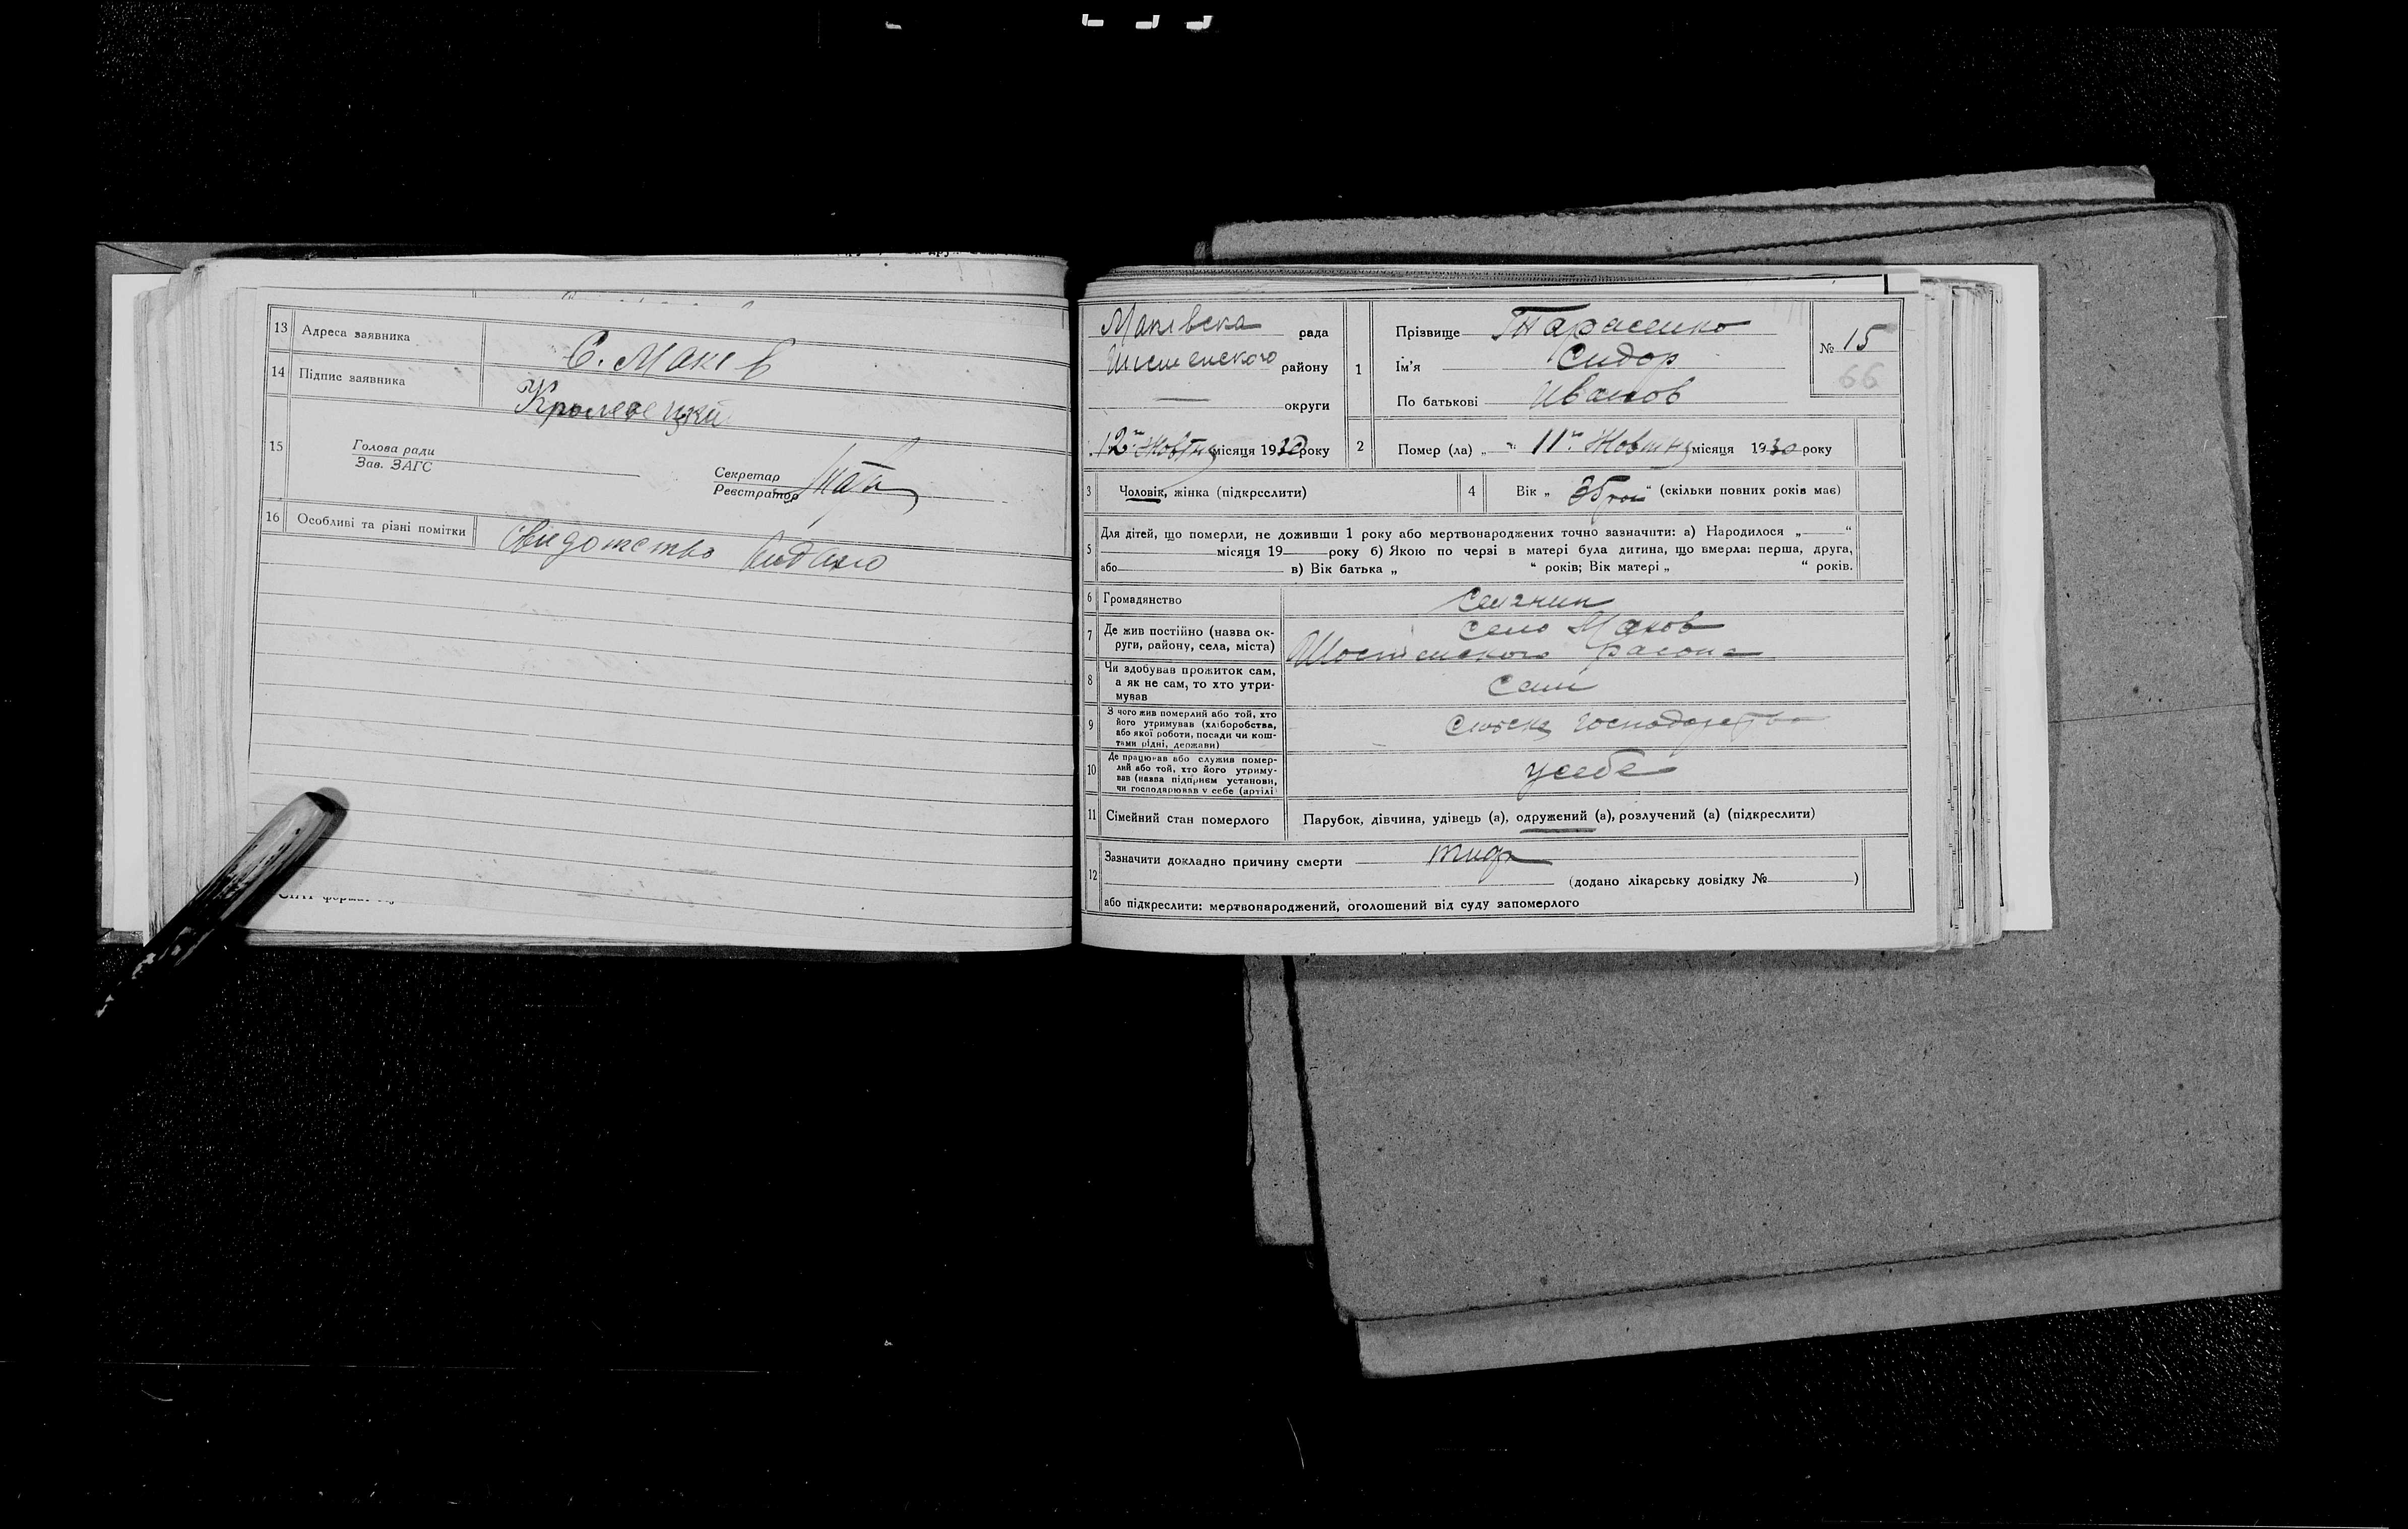 13 Адреса заявника С. Макїв
14 Підпис заявника Кролевецкий
15 Голова ради
Зав. ЗАГС
Секретар
Реєстратор
16 Особливі та різні помітки Свидотство видано
Маківска рада
Шостенского району
округи
12го Жовтня місяця 1930 року
1 Прізвище Тарасенко
Ім'я Сидор
По батькові Иванов
№ 15
66
2 Помер (ла) „ 11го Жовтня місяця 1930 року
3 Чоловік, жінка (підкреслити)
4 Вік „ 35 рок “ (скільки повних років має)
5 Для дітей, що померли, не доживши 1 року або мертвонароджених точно зазначити: а) Народилося „ “
місяця 19 року б) Якою по черзі в матері була дитина, що вмерла: перша, друга,
або в) Вік батька „ “ років; Вік матері „ “ років.
6 Громадянство селянин
7 Де жив постійно (назва ок-
руги, району, села, міста)
село Маков
Шостенского района
8 Чи здобував прожиток сам,
а як не сам, то хто утри-
мував
сам
9 З чого жив померлий або той, хто
його утримував (хліборобства,
або якої роботи, посади чи кош-
тами рідні, держави)
господарства
10 Де працював або служив помер-
лий або той, хто його утриму-
вав (назва підприєм установи,
чи господарював у себе (артілі)
у себе
11 Сімейний стан померлого Парубок, дівчина, удівець (а), одружений (а), розлучений (а) (підкреслити)
12 Зазначити докладно причину смерти тиф
(додано лікарську довідку № )
або підкреслити: мертвонароджений, оголошений від суду запомерлого